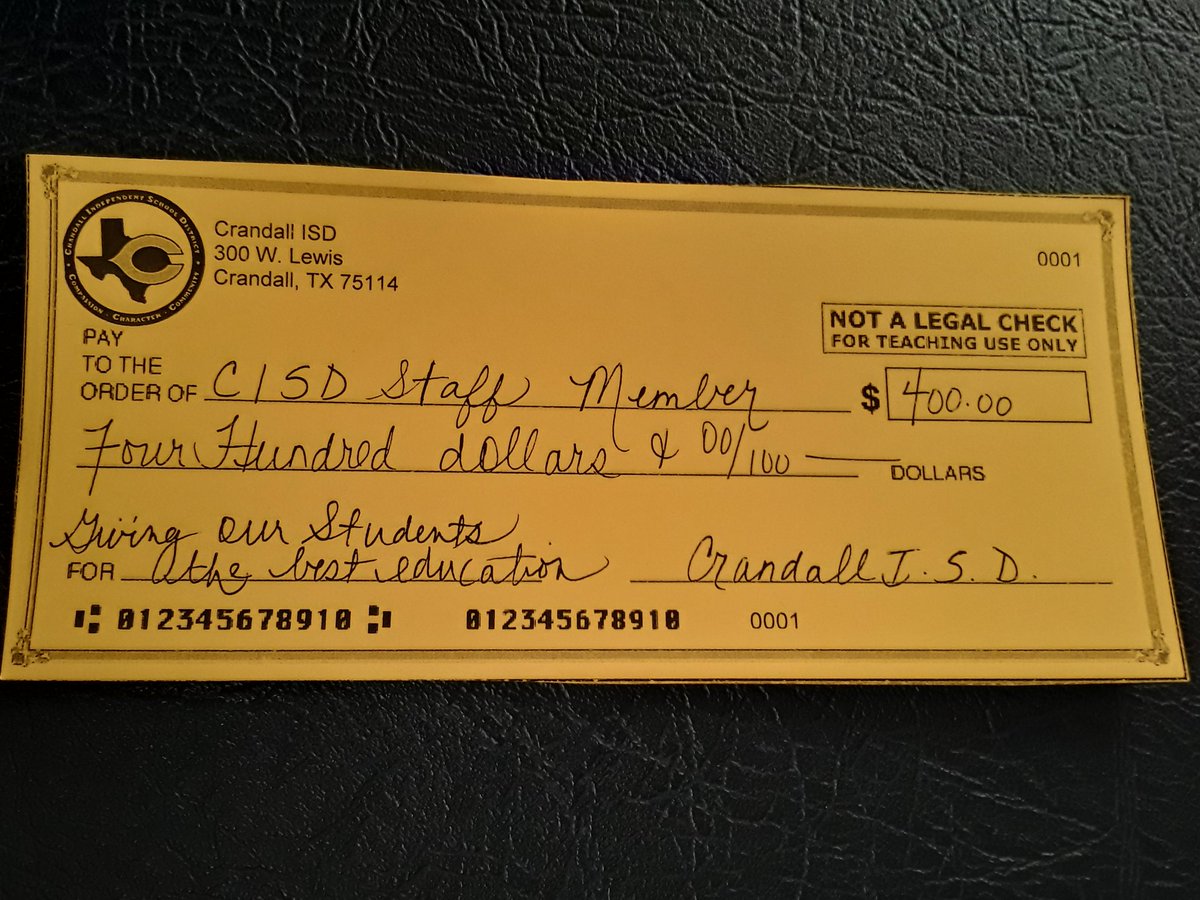 CRANDALL INDEPENDENT SCHOOL DISTRICT
COMPASSION · CHARACTER · COMMUNITY
Crandall ISD
300 W. Lewis
Crandall, TX 75114
0001
NOT A LEGAL CHECK
FOR TEACHING USE ONLY
PAY
TO THE
ORDER OF CISD Staff Member $ 400.00
Four Hundred dollars & 00/100 DOLLARS
Giving our Students
FOR the best education Crandall I.S.D.
012345678910 012345678910 0001